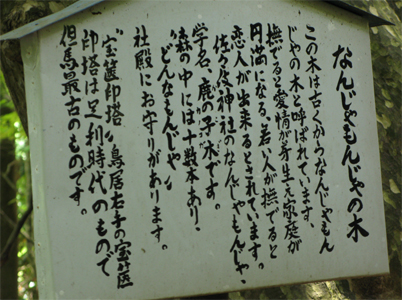 なんじゃもんじゃの木
この木は古くからなんじゃもん
じゃの木と呼ばれています、
撫でると愛情が芽生え家庭が
円満になる、若い人が撫でると
恋人が出来るとされています。
佐々伎神社のなんじゃもんじゃ、
学名、鹿の子木です。
森の中には十数本あり、
〝どんなもんじゃ〟
社殿にお守りがあります。
〝宝篋印塔〟鳥居右手の宝篋
印塔は足利時代のもので
但馬最古のものです。